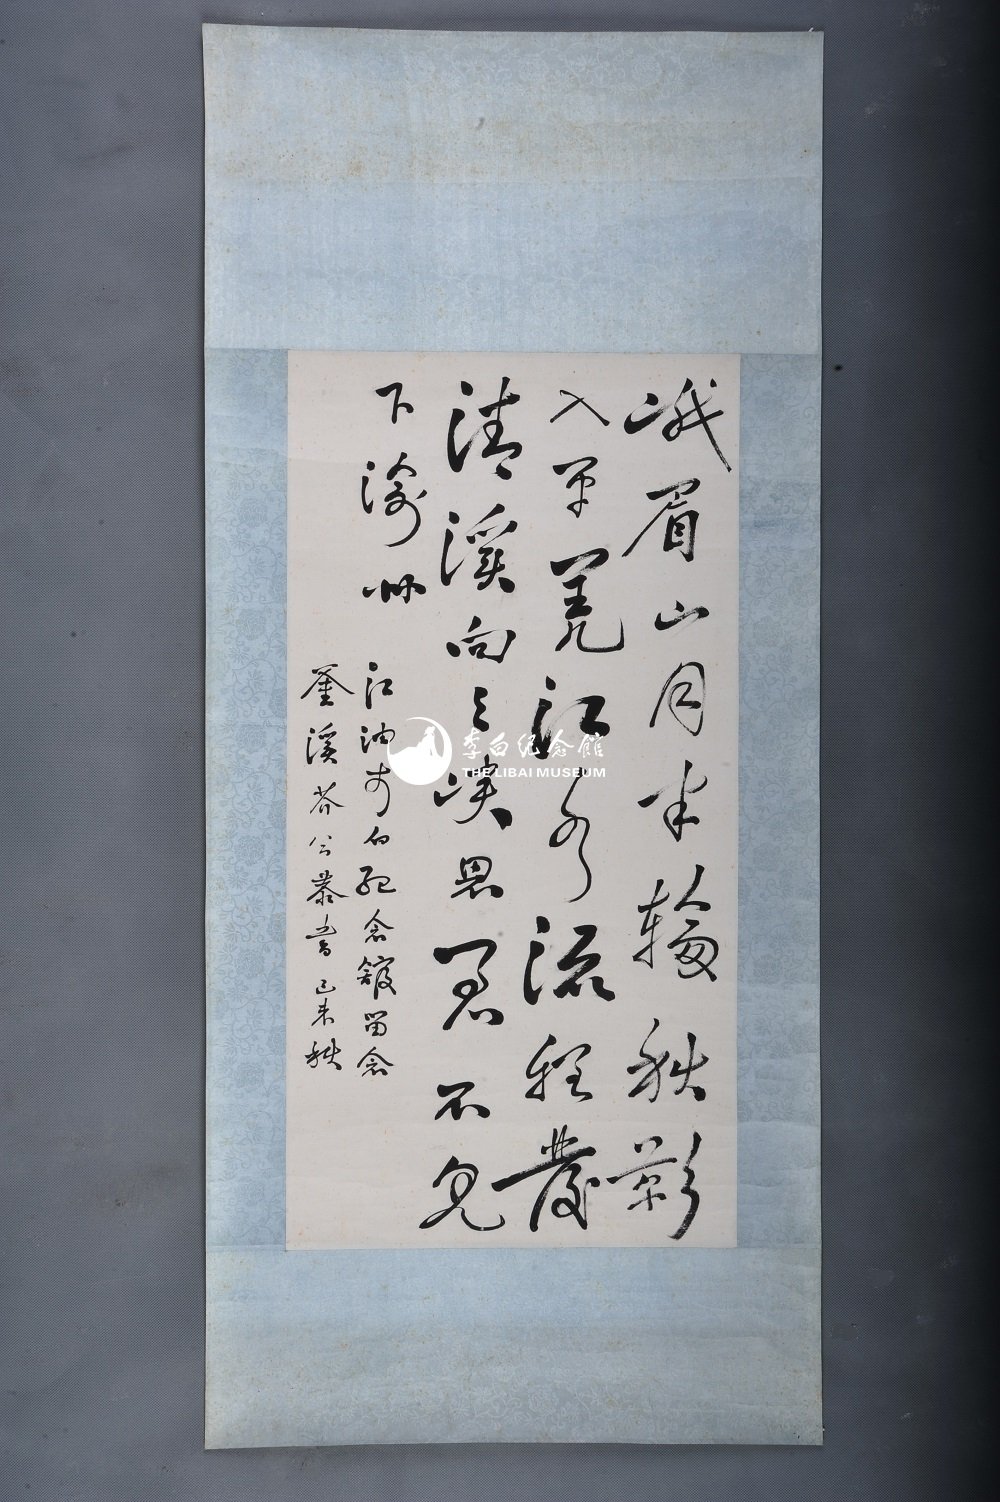 峨眉山月半輪秋影
入平羌江水流夜發
清溪向三峽思君不見
下渝州
江油李白紀念館留念
釜溪公恭書己未秋
李白纪念館
THE LIBAI MUSEUM